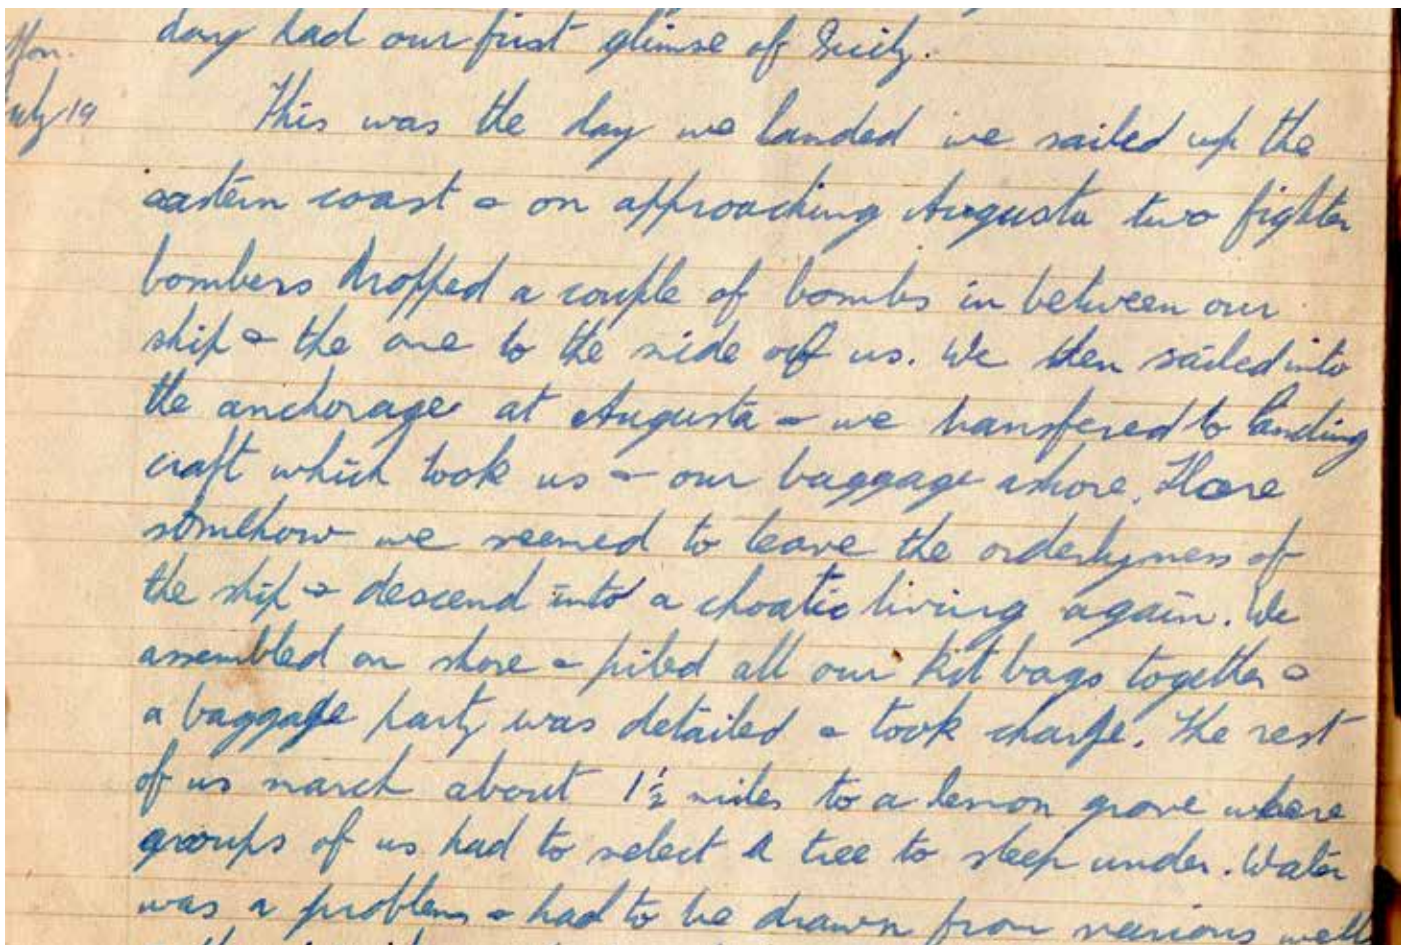 day had our first glimse of Sicily.
Mon.
July 19 This was the day we landed we sailed up the
eastern coast & on approaching Augusta two fighter
bombers dropped a couple of bombs in between our
ship & the one to the side of us. We then sailed into
the anchorage at Augusta & we transfered to landing
craft which took us & our baggage ashore. Here
somehow we seemed to leave the orderlyness of
the ship & descend into a choatic living again. We
assembled on shore & piled all our kit bags together &
a baggage party was detailed & took charge. The rest
of us march about 1½ miles to a lemon grove where
groups of us had to select a tree to sleep under. Water
was a problem & had to be drawn from various wells